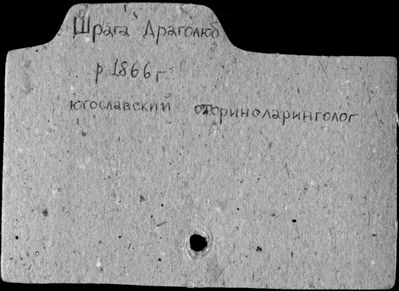 Шрага Драголюб
р. 1866 г
югославский оториноларинголог